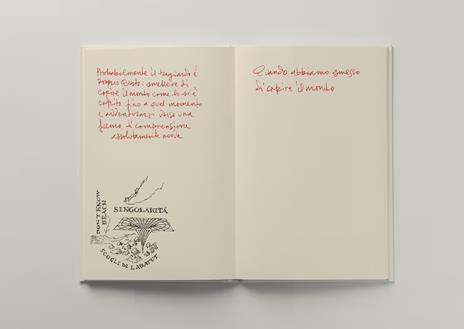 Probabilmente il traguardo è
proprio questo: smettere di
capire il mondo come lo si è
capito fino a quel momento
e avventurarsi verso una
forma di comprensione
assolutamente nuova
SINGOLARITÁ
DON'T KNOW
BEACH
SCOGLI DI LABATUT
Quando abbiamo smesso
di capire il mondo